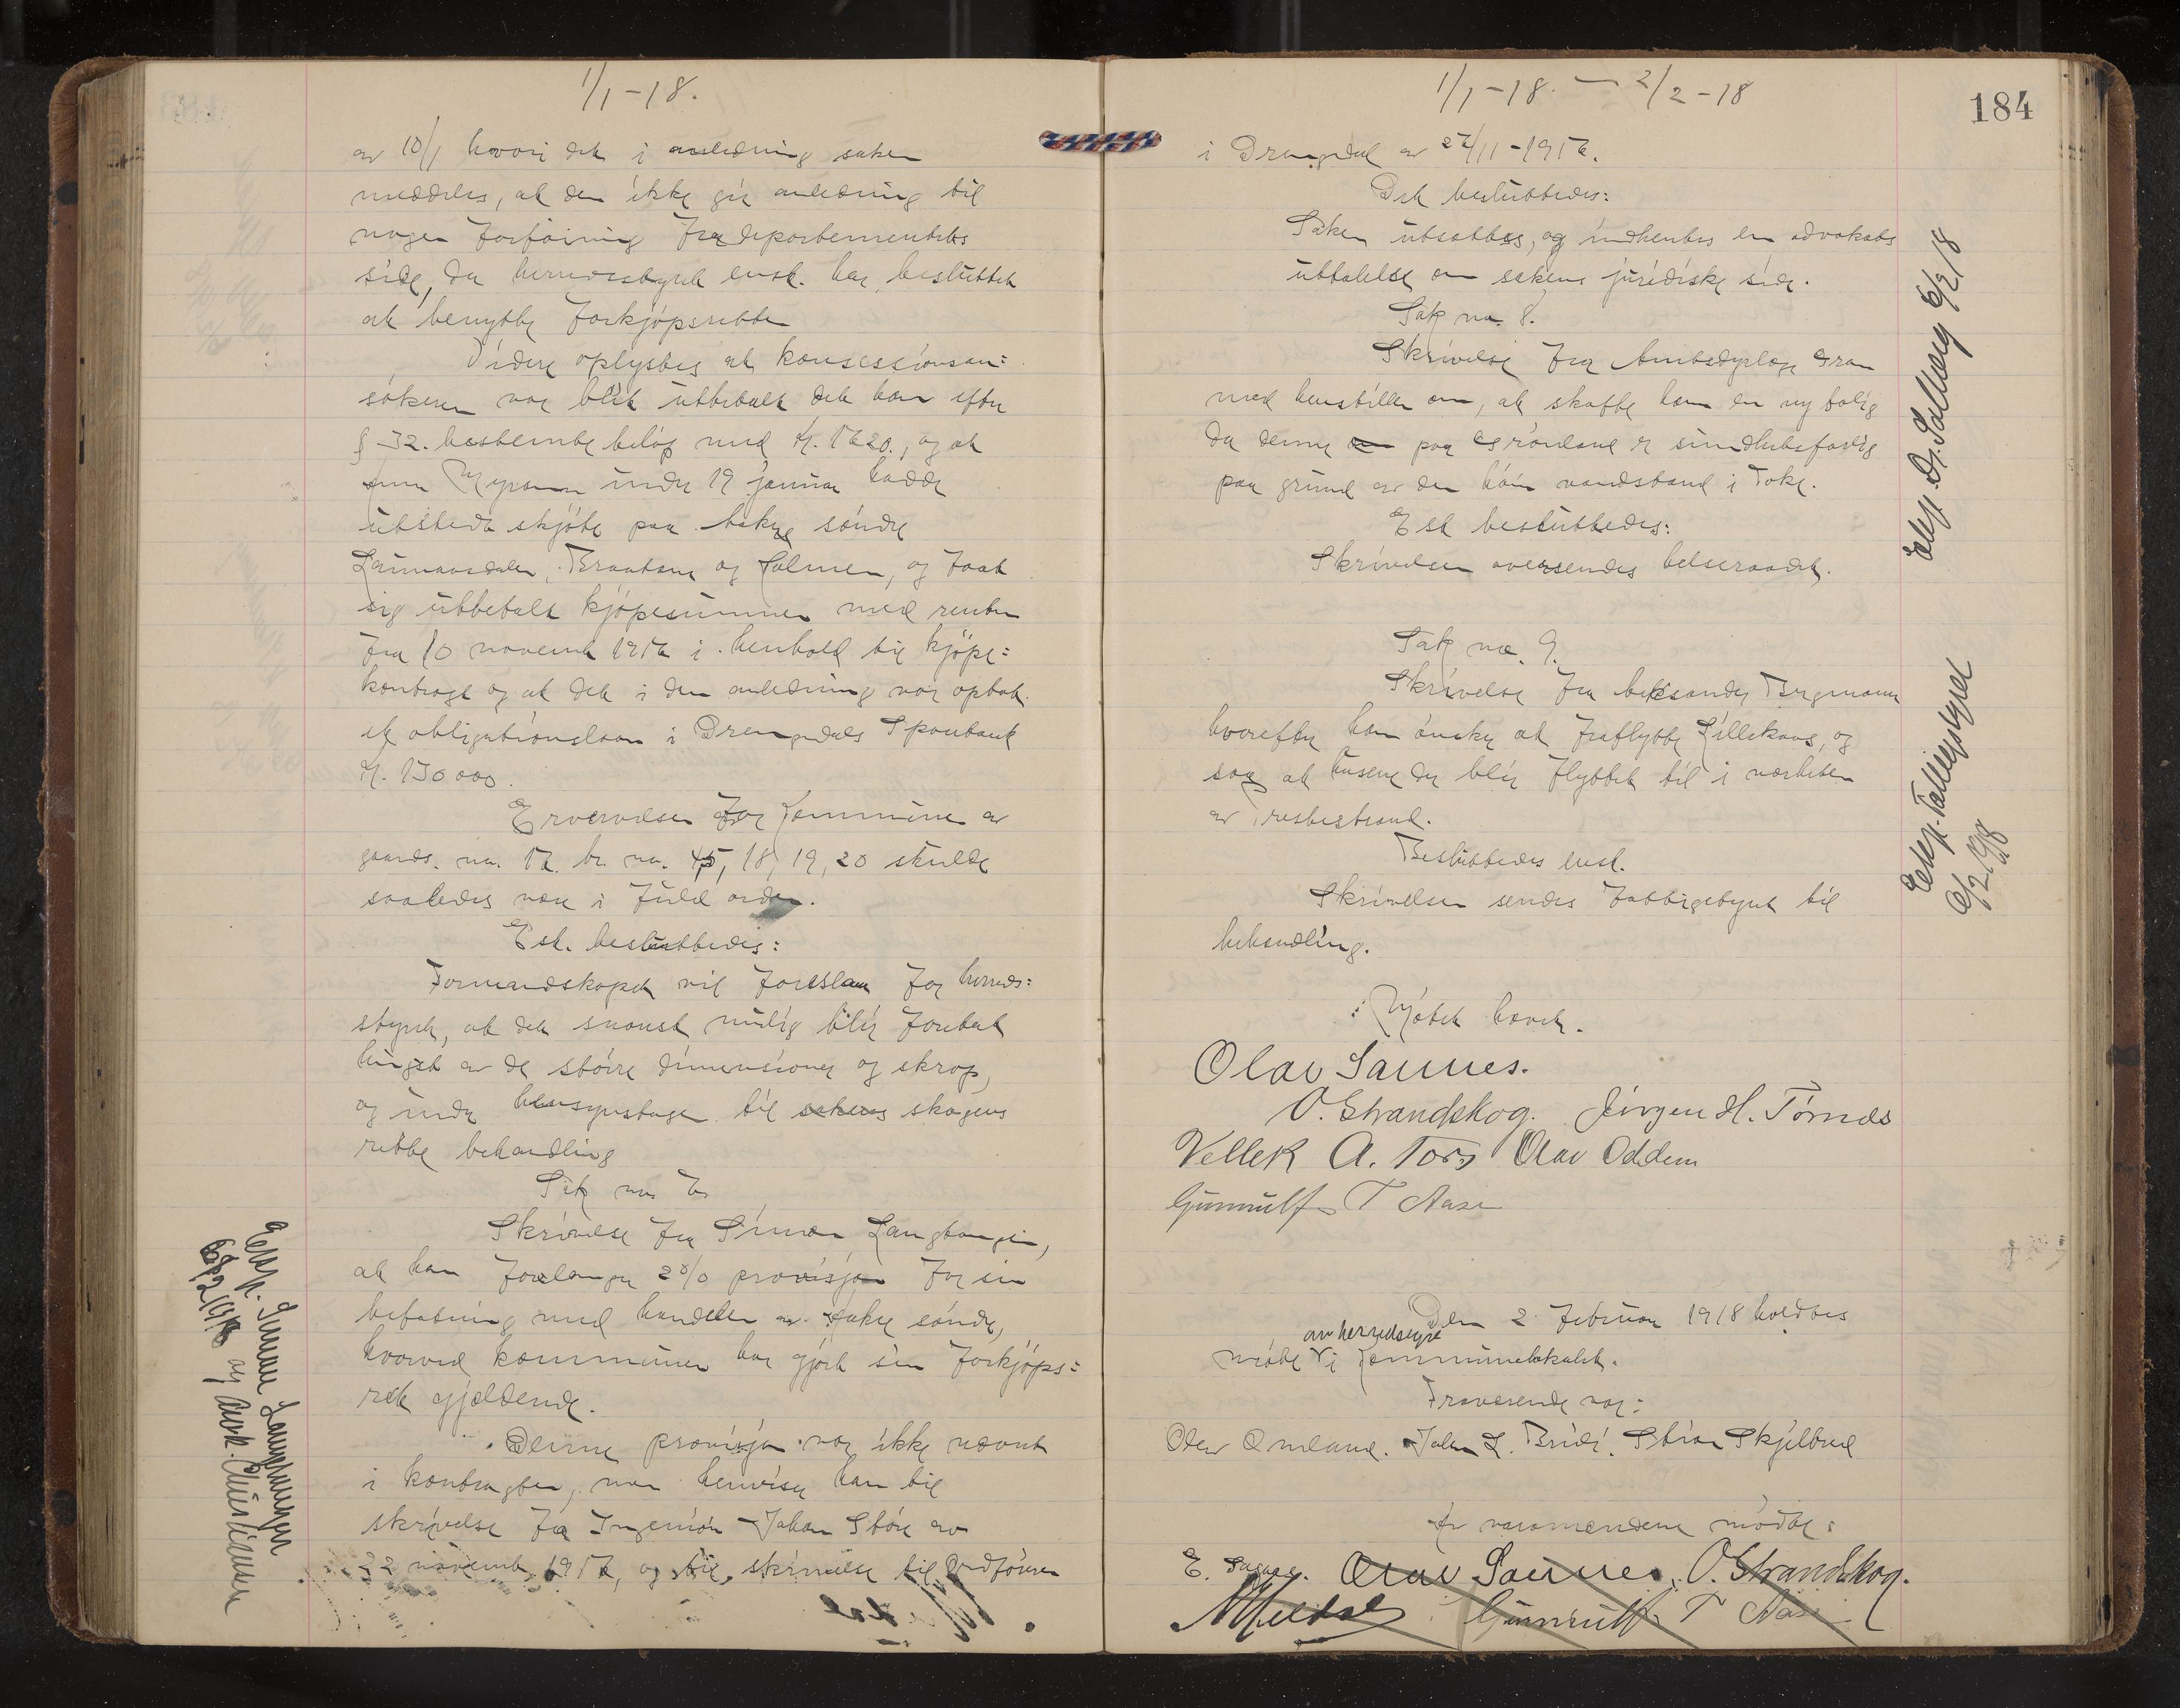 1/1-18.
av 10/1 hvori det i anledning saken
meddeles, at den ikke gir anledning til
nogen forføining fra departementets
side, da herredsstyret enst. har besluttet
at benytte forkjøpsretten
Videre oplystes at konsessionsan=
søkeren var blit utbetalt det ham efter
§ 32. bestemte beløp med kr. 1720., og at
under 19 januar hadde
utstedt skjøte paa søndre
Launaasdalen, Braatane og Holmen, og faat
sig utbetalt kjøpesummen med renter
fra 10 novemb 1917 i henhold til kjøpe=
kontragt og at det i den anledning var optat
et obligationslaan i Drangedals Sparebank
kr. 150 000.
Ervervelsen for kommunen av
gaards. no. 17. br. no. 45, 18, 19, 20 skulde
saaledes være i fuld orden.
Est. besluttedes:
Formandskapet vil foreslaa for herreds=
styret, at det snarest mulig blir foretat
hugst av de større dimensioner og skrap,
og under hensyntagen til sakens skogens
rette behandling
Sak no 7.
Skrivelse fra Simon Langtangen,
at han forlanger 2% provisjon for sin
befatning med handelen av søndre,
hvorved kommunen har gjort sin forkjøps=
ret gjældende.
Denne provisjon var ikke nævnt
i kontragten, men henviser han til
skrivelse fra Ingeniør Johan Støre av
22 novemb 1917, og til skrivelse til Ordføreren
Eksp. Simon Langtangen
6/2 1918 og Advk. Christiansen
1/1-18. — 2/2-18
184
i Drangedal av 27/11-1917.
Det besluttedes:
Saken utsættes, og indhentes en advokats
uttalelse om sakens juridiske side.
Sak no. 8.
Skrivelse fra Amtsdyrlæge Gran
med henstillen om, at skaffe ham en ny bolig
da denne paa Grønland er sundhetsfarlig
paa grund av den høie vandstand i Toke.
Est besluttedes:
Skrivelsen oversendes helseraadet.
Sak no. 9.
Skrivelse fra Bergmann
hvorefter han ønsker at fraflytte Lillekaas, og
saa at husene der blir flyttet til i nærheten
av
Besluttedes enst.
Skrivelsen sendes fattigstyret til
behandling.
Møtet hævet.
Olav Saunes.
O. Strandskog. Jørgen H. Tørnes
Vellek A. Tors Olav Oddem
Gunnulf T Aase
eksp. Dr. Solberg 6/2 18
Eksp. Fattigstyret
6/2 1918
Den 2 februar 1918 holdtes
av herredsstyre
møte i kommunelokalet.
Fraværende var:
Olav Omland. John L. Bride. Stian Skjelbred
Av varamændene møtte:
E. Olav Saunes, O. Strandskog.
Gunnulf T Aase